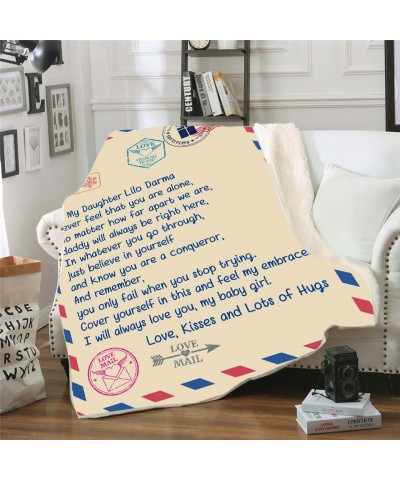 LOVE
My Daughter Lilo Darma
ever feel that you are alone,
o matter how far apart we are,
addy will always be right here,
In whatever you go through,
just believe in yourself
and know you are a conqueror,
And remember,
you only fail when you stop trying.
Cover yourself in this and feel my embrace
I will always love you, my baby girl.
Love, Kisses and Lots of Hugs
LOVE
MAIL
LOVE
MAIL
ABCDE
FGHIJK